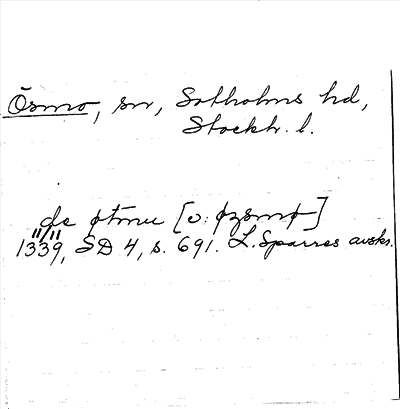 Ösmo, sn, Sotholms hd,
Stockh. l.
de øtmu [o: øzsmø]
1339, SD 4, s. 691. L. Sparres avskr.